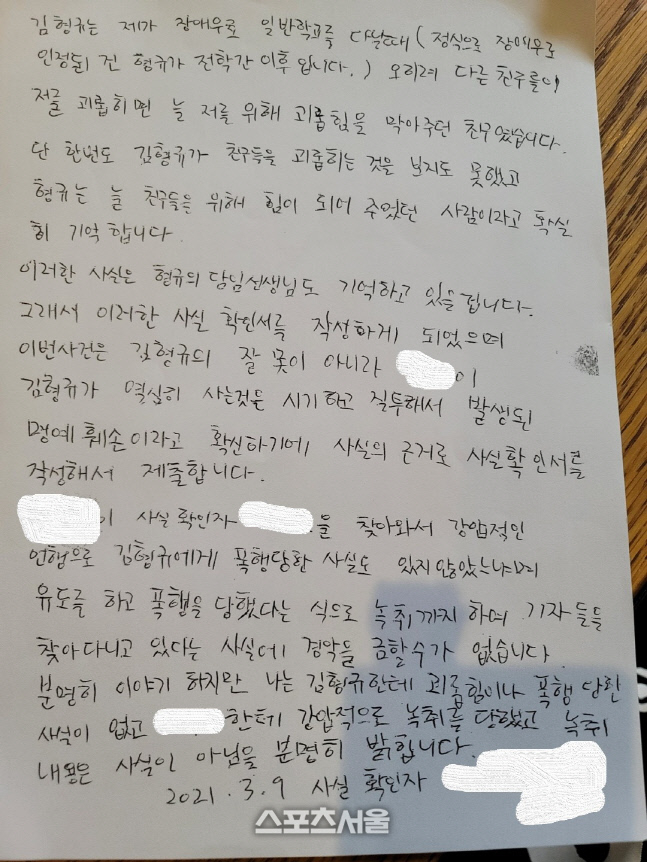 김형규는 제가 장애우로 일반학교를 다닐때 (정식으로 장애우로
인정된 건 형규가 전학간 이후 입니다.) 오히려 다른 친구들이
저를 괴롭히면 늘 저를 위해 괴롭힘을 막아주던 친구였습니다.
단 한번도 김형규가 친구들을 괴롭히는 것을 보지도 못했고
형규는 늘 친구들을 위해 힘이 되어 주었던 사람이라고 확실
히 기억합니다.
이러한 사실은 형규의 담임선생님도 기억하고 있을 겁니다.
그래서 이러한 사실 확인서를 작성하게 되었으며
이번사건은 김형규의 잘 못이 아니라 이
김형규가 열심히 사는것을 시기하고 질투해서 발생된
명예훼손이라고 확신하기에 사실의 근거로 사실확인서를
작성해서 제출합니다.
이 사실확인자 을 찾아와서 강압적인
언행으로 김형규에게 폭행당한 사실도 있지않았느냐며
유도를 하고 폭행을 당했다는 식으로 녹취까지 하며 기자들을
찾아다니고 있다는 사실에 경악을 금할수가 없습니다.
분명히 이야기 하지만 나는 김형규한테 괴롭힘이나 폭행 당한
사실이 없고 한테 강압적으로 녹취를 당했고 녹취
내용은 사실이 아님을 분명히 밝힙니다.
2021.3.9 사실 확인자
스포츠서울